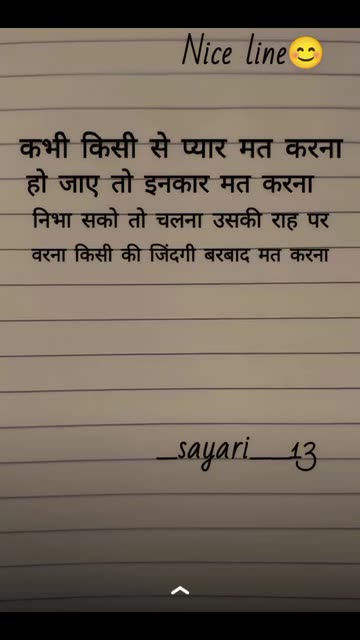 Nice line😊
कभी किसी से प्यार मत करना
हो जाए तो इनकार मत करना
निभा सको तो चलना उसकी राह पर
वरना किसी की जिंदगी बरबाद मत करना
_sayari__13